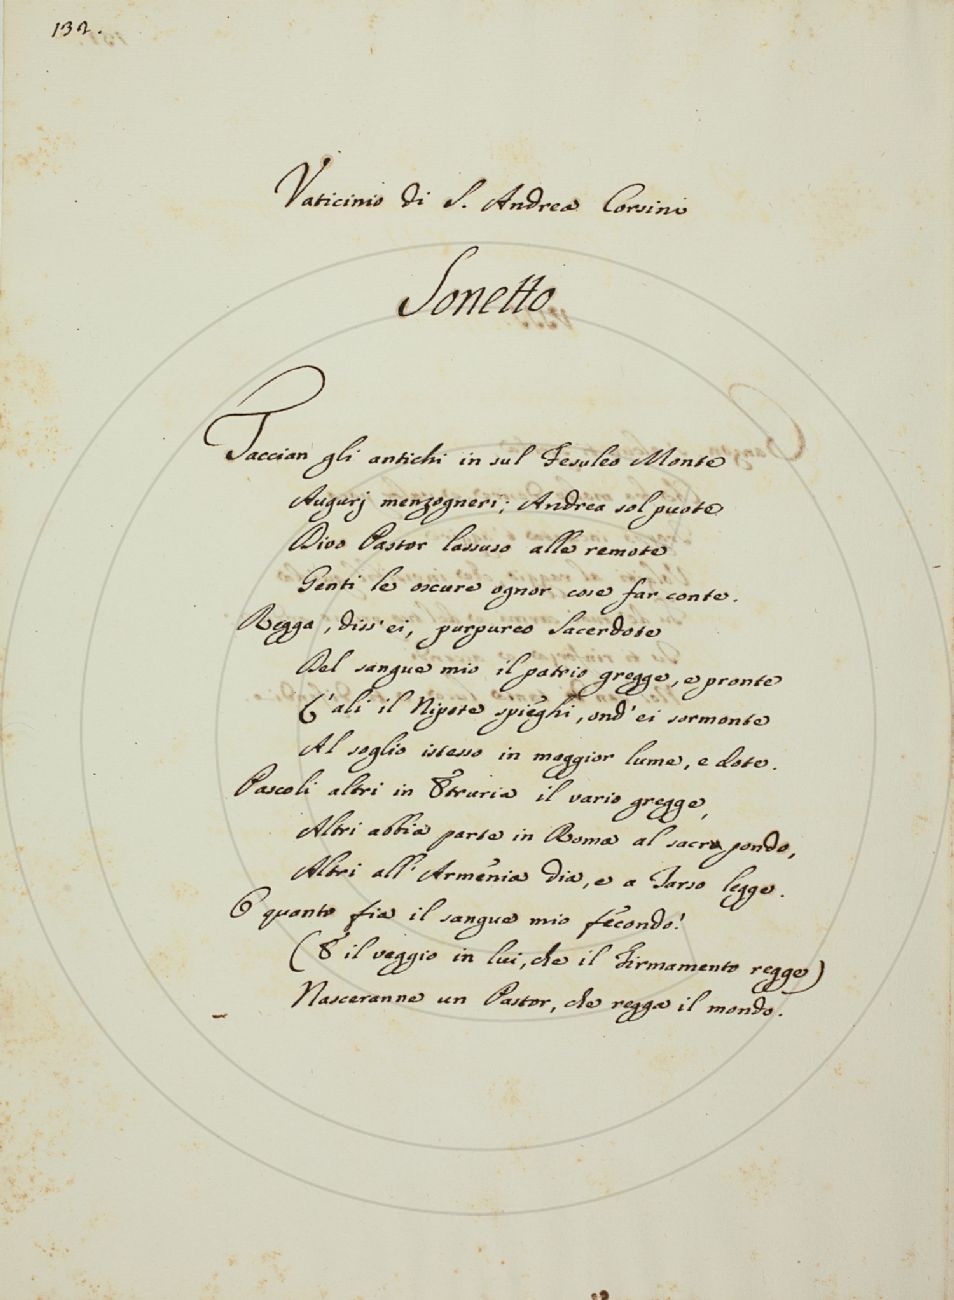 132.
Vaticinio di S. Andrea Corsini
Sonetto
Taccian gli antichi in sul Fesuleo Monte
Augurj menzogneri; Andrea sol puote
Divo Pastor lassuso alle remote
Genti le oscure ognor cose far conte.
Regga, diss' ei, purpureo Sacerdote
Del sangue mio il patrio gregge, e pronte
L' ali il Nipote spieghi, ond' ei sormonte
Al soglio istesso in maggior lume, e dote.
Pascoli altri in Etruria il vario gregge,
Altri abbia parte in Roma al sacro pondo,
Altri all' Armenia dia, e a Tarso legge.
O quanto fia il sangue mio fecondo!
(E il veggio in lui, che il Firmamento regge)
Nasceranne un Pastor, che regga il mondo.